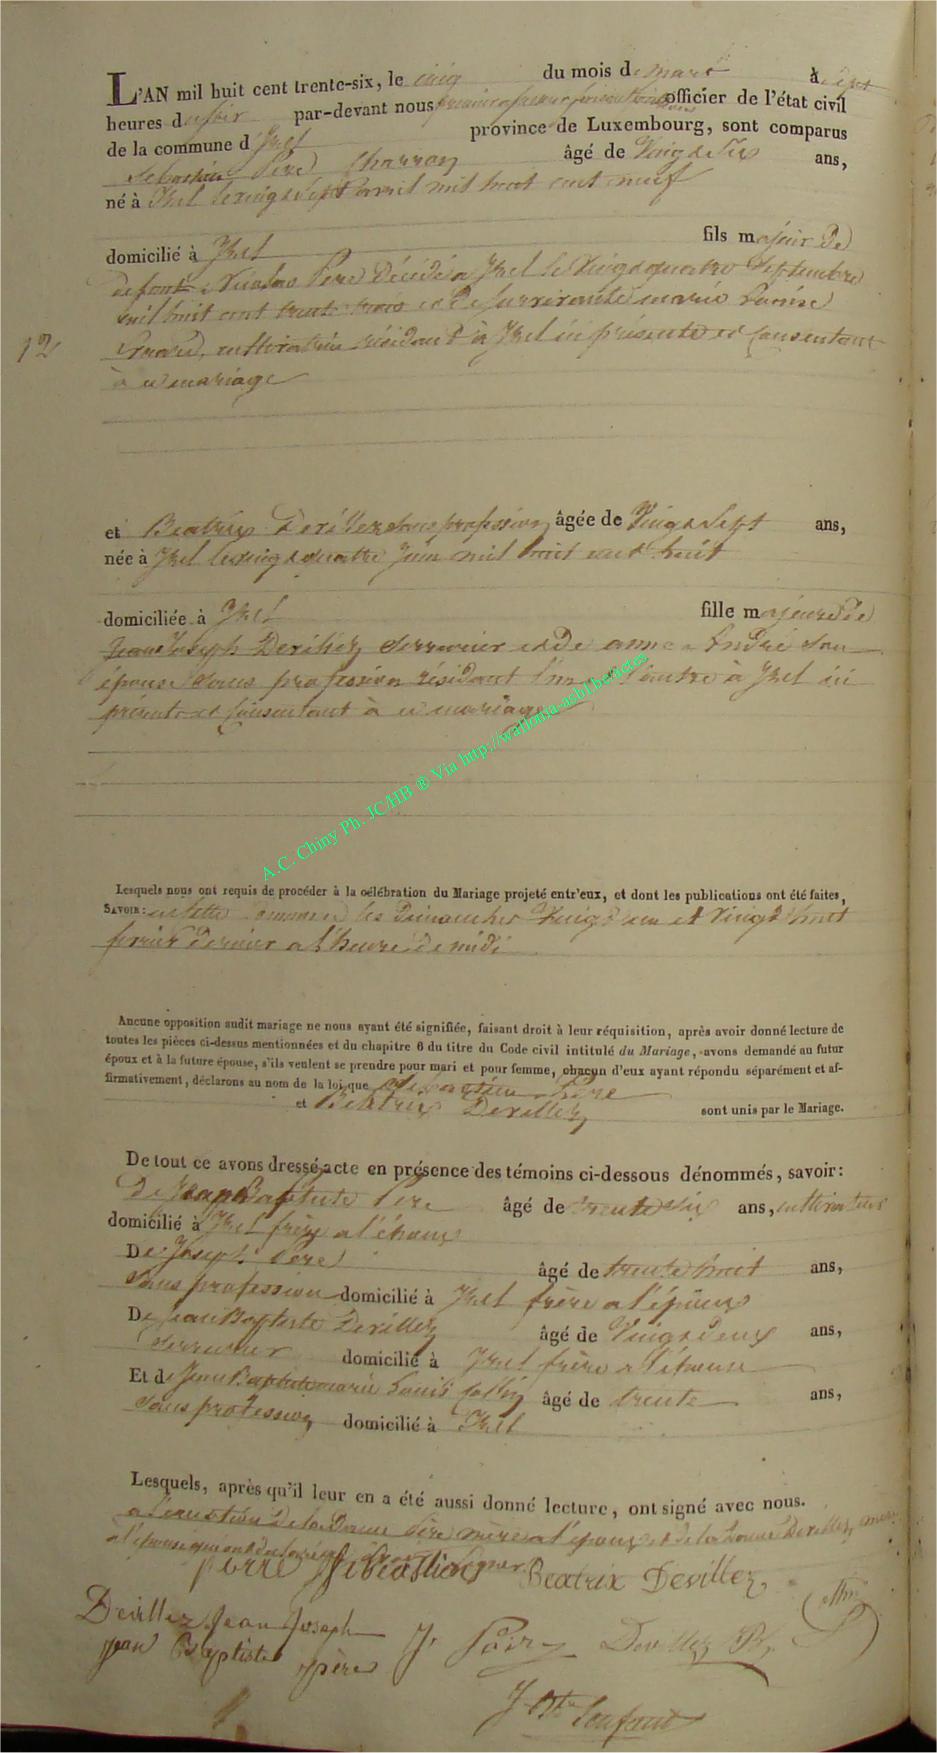 L'AN mil huit cent trente-six, le cinq du mois de mars à sept
heures du soir par-devant nous officier de l'état civil
de la commune d'Izel province de Luxembourg, sont comparus
Sebastien Père Charron âgé de Vingt Six ans,
né à Izel le vingt Sept avril mil huit cent neuf
domicilié à Izel fils majeur de
defunt Nicolas Père Décédé a Izel le Vingt quatre Septembre
mil huit cent trente trois et de Survivante marie Louise
cultivatrice résidant à Izel ici présente et Consentant
à ce mariage
12
et Beatrix Devillez sans profession âgée de Vingt Sept ans,
née à Izel le vingt quatre Juin mil huit cent huit
domiciliée à Izel fille majeure de
Jean Joseph Devillez Serrurier et de anne André Son
épouse Sans profession résidant l'un et l'autre à Izel ici
présents et Consentant à ce mariage
A.C. Chiny Ph. JC/HB ® Via http://wallonia-asbl.be/actes
Lesquels nous ont requis de procéder à la célébration du Mariage projeté entr'eux, et dont les publications ont été faites,
SAVOIR: en cette Commune les Dimanches Vingt un et Vingt huit
fevrier dernier a l'heure de midi
Aucune opposition audit mariage ne nous ayant été signifiée, faisant droit à leur réquisition, après avoir donné lecture de
toutes les pièces ci-dessus mentionnées et du chapitre 6 du titre du Code civil intitulé du Mariage, avons demandé au futur
époux et à la future épouse, s'ils veulent se prendre pour mari et pour femme, chacun d'eux ayant répondu séparément et af-
firmativement, déclarons au nom de la loi que Sebastien Père
et Beatrix Devillez sont unis par le Mariage.
De tout ce avons dressé acte en présence des témoins ci-dessous dénommés, savoir:
De Jean Baptiste Père âgé de trente Six ans, cultivateur
domicilié à Izel frère a l'époux
De Joseph Père âgé de trente huit ans,
Sans profession domicilié à Izel frère a l'époux
De Jean Baptiste Devillez âgé de Vingt Deux ans,
Serrurier domicilié à Izel frère a l'épouse
Et de Jean Baptiste marie Louis Collin âgé de trente ans,
Sans profession domicilié à Izel
Lesquels, après qu'il leur en a été aussi donné lecture, ont signé avec nous.
a l'exception de la Dame Père mère a l'époux et de la Dame Devillez mère
a l'épouse qui ont déclaré ne savoir Signer
perre sebeastien Beatrix Devillez
Devillez Jean Joseph
jean Baptiste père J. Père Devillez